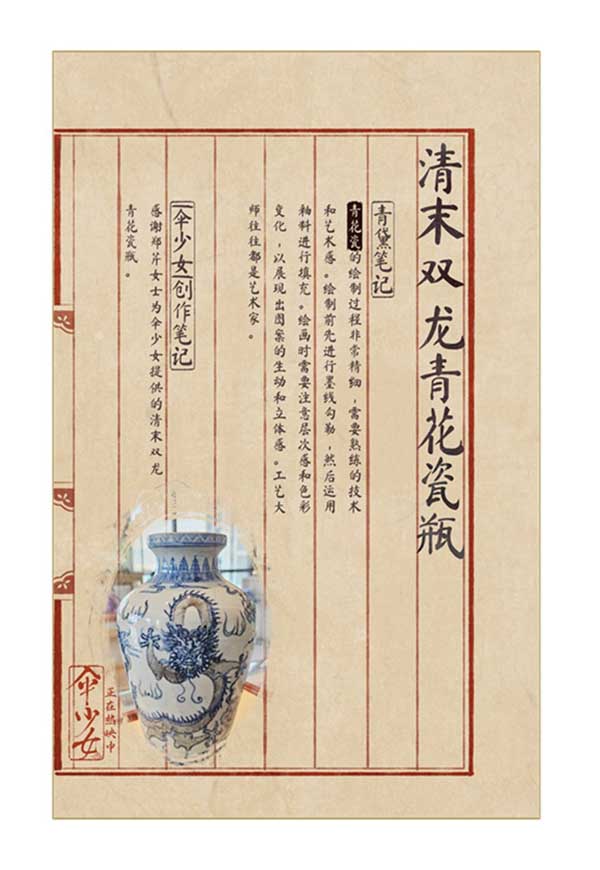 清末双龙青花瓷瓶
青黛笔记
青花瓷的绘制过程非常精细，需要熟练的技术
和艺术感。绘制前先进行墨线勾勒，然后运用
釉料进行填充。绘画时需要注意层次感和色彩
变化，以展现出图案的生动和立体感。工艺大
师往往都是艺术家。
伞少女创作笔记
感谢郑芹女士为伞少女提供的清末双龙
青花瓷瓶。
伞少女
正在热映中